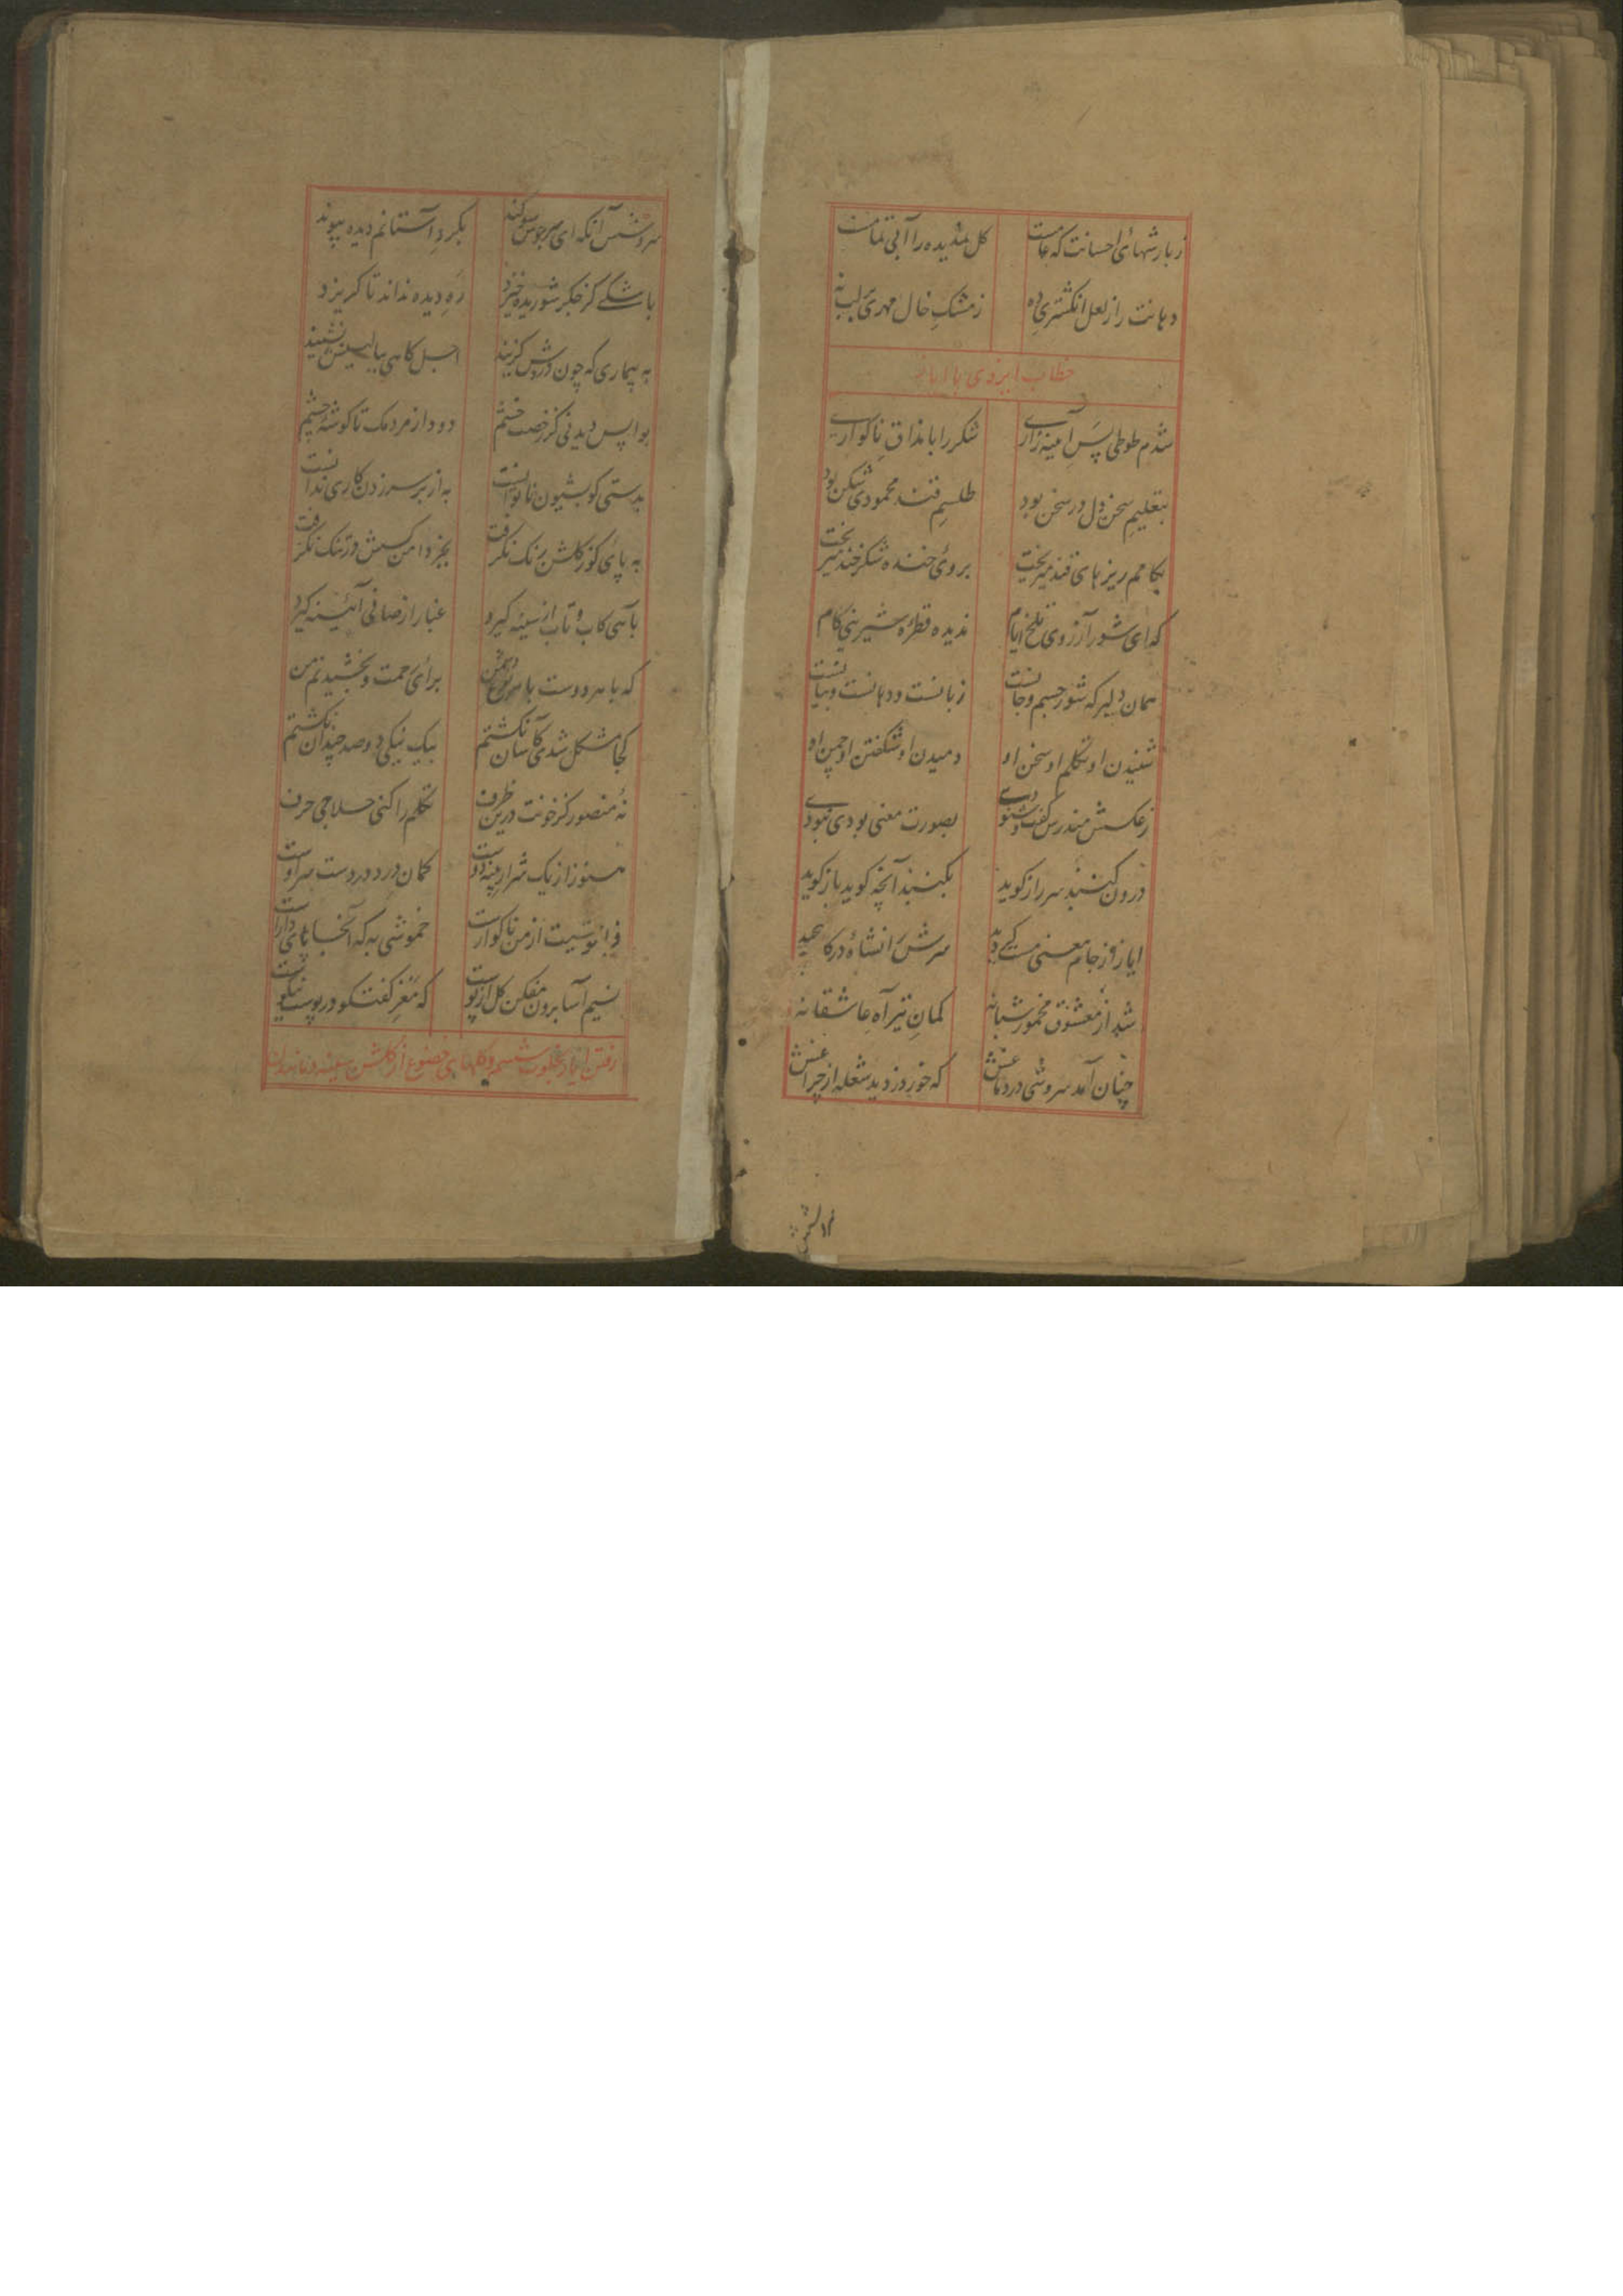 زبارشهای احسانت که عامست کل نشدیده را آبی تمامست
دهانت را ز لعل انکشتری ده ز مشکِ خال مهری بر لب نه
خطاب ایزدی با ایاز
شدم طوطی پسِ آیینه زاری شکر را با مذاقِ ناکواری
بتعلیمِ سخن دل در سخن بود طلسمِ قند محمودی شکن بود
بکامم ریزهای قند میریخت بروی خنده شکرخند میریخت
که ای شور آرزوی تلخ ایام ندیده قطرهٔ شیرینی کام
همان دلبر که شور جسم و جانست زبانست و دهانست و بیانست
شنیدن او تکلم او سخن او دمیدن او شکفتن او چمن او
ز عکسش مدرس کفت و شنودی بصورت معنی بودی نبودی
درون کنبد سر راز کوید بکنبد آنچه کوید باز کوید
ایاز از جام معنی مستیی دید سرش را نشاه در
شد از معشوق مخمور شبانه کمانِ تیر آه عاشقانه
چنان آمد سروشی در دماغش که خور دزدید شعله از چراغش
سروشش آنکه ای سر جوش سوکند بکردِ آستانم دیده پیوند
باشکی کز جکر شوریده خیزد رهِ دیده نداند تا کریزد
به بیماری که چون دردش کزیند اجل کاهی ببالینش نشیند
بواپس دیدنی کز رخصت خشم دود از مردمک تا کوشهٔ چشم
بدستی کو بشیون ناتوانست به از بر سر زدن کاری ندانست
به پای کو ز کلشن رنک نکرفت بجز دامن کسش در تنک نکرفت
بآهی کاب و تاب از سینه کیرد غبار از صافی آئینه کیرد
که با هر دوست با هر نوع دشمن برای رحمت و بخشیدنم من
کجا مشکل شدی کآسان نکشتم بیک نیکی دو صد چندان نکشتم
نهٔ منصور کز خونت درین ظرف تکلم را کنی حلاجی حرف
هنوز از یک شرار پنبه دوست کمان درد در دست سر اوست
خموشی به که آنجا پای دارست
نسیم آسا برون مفکن کل از پوست که مغزِ کفتکو در پوست نیکوست
رفتن ایاز بخلوت و کلهای خضوع از کلشن سینه